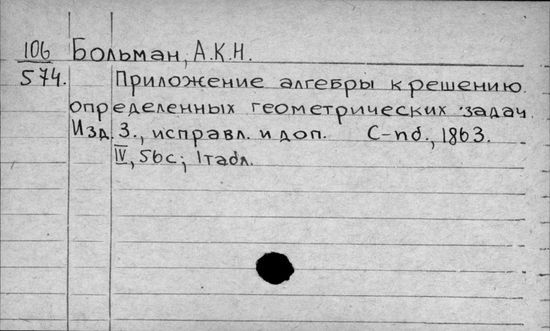 106 Больман, А.К.Н.
574. Приложение алгебры к решению
определенных геометрических задач.
Изд. 3., исправл. и доп. С-пб., 1863.
IV, 56с; 1табл.